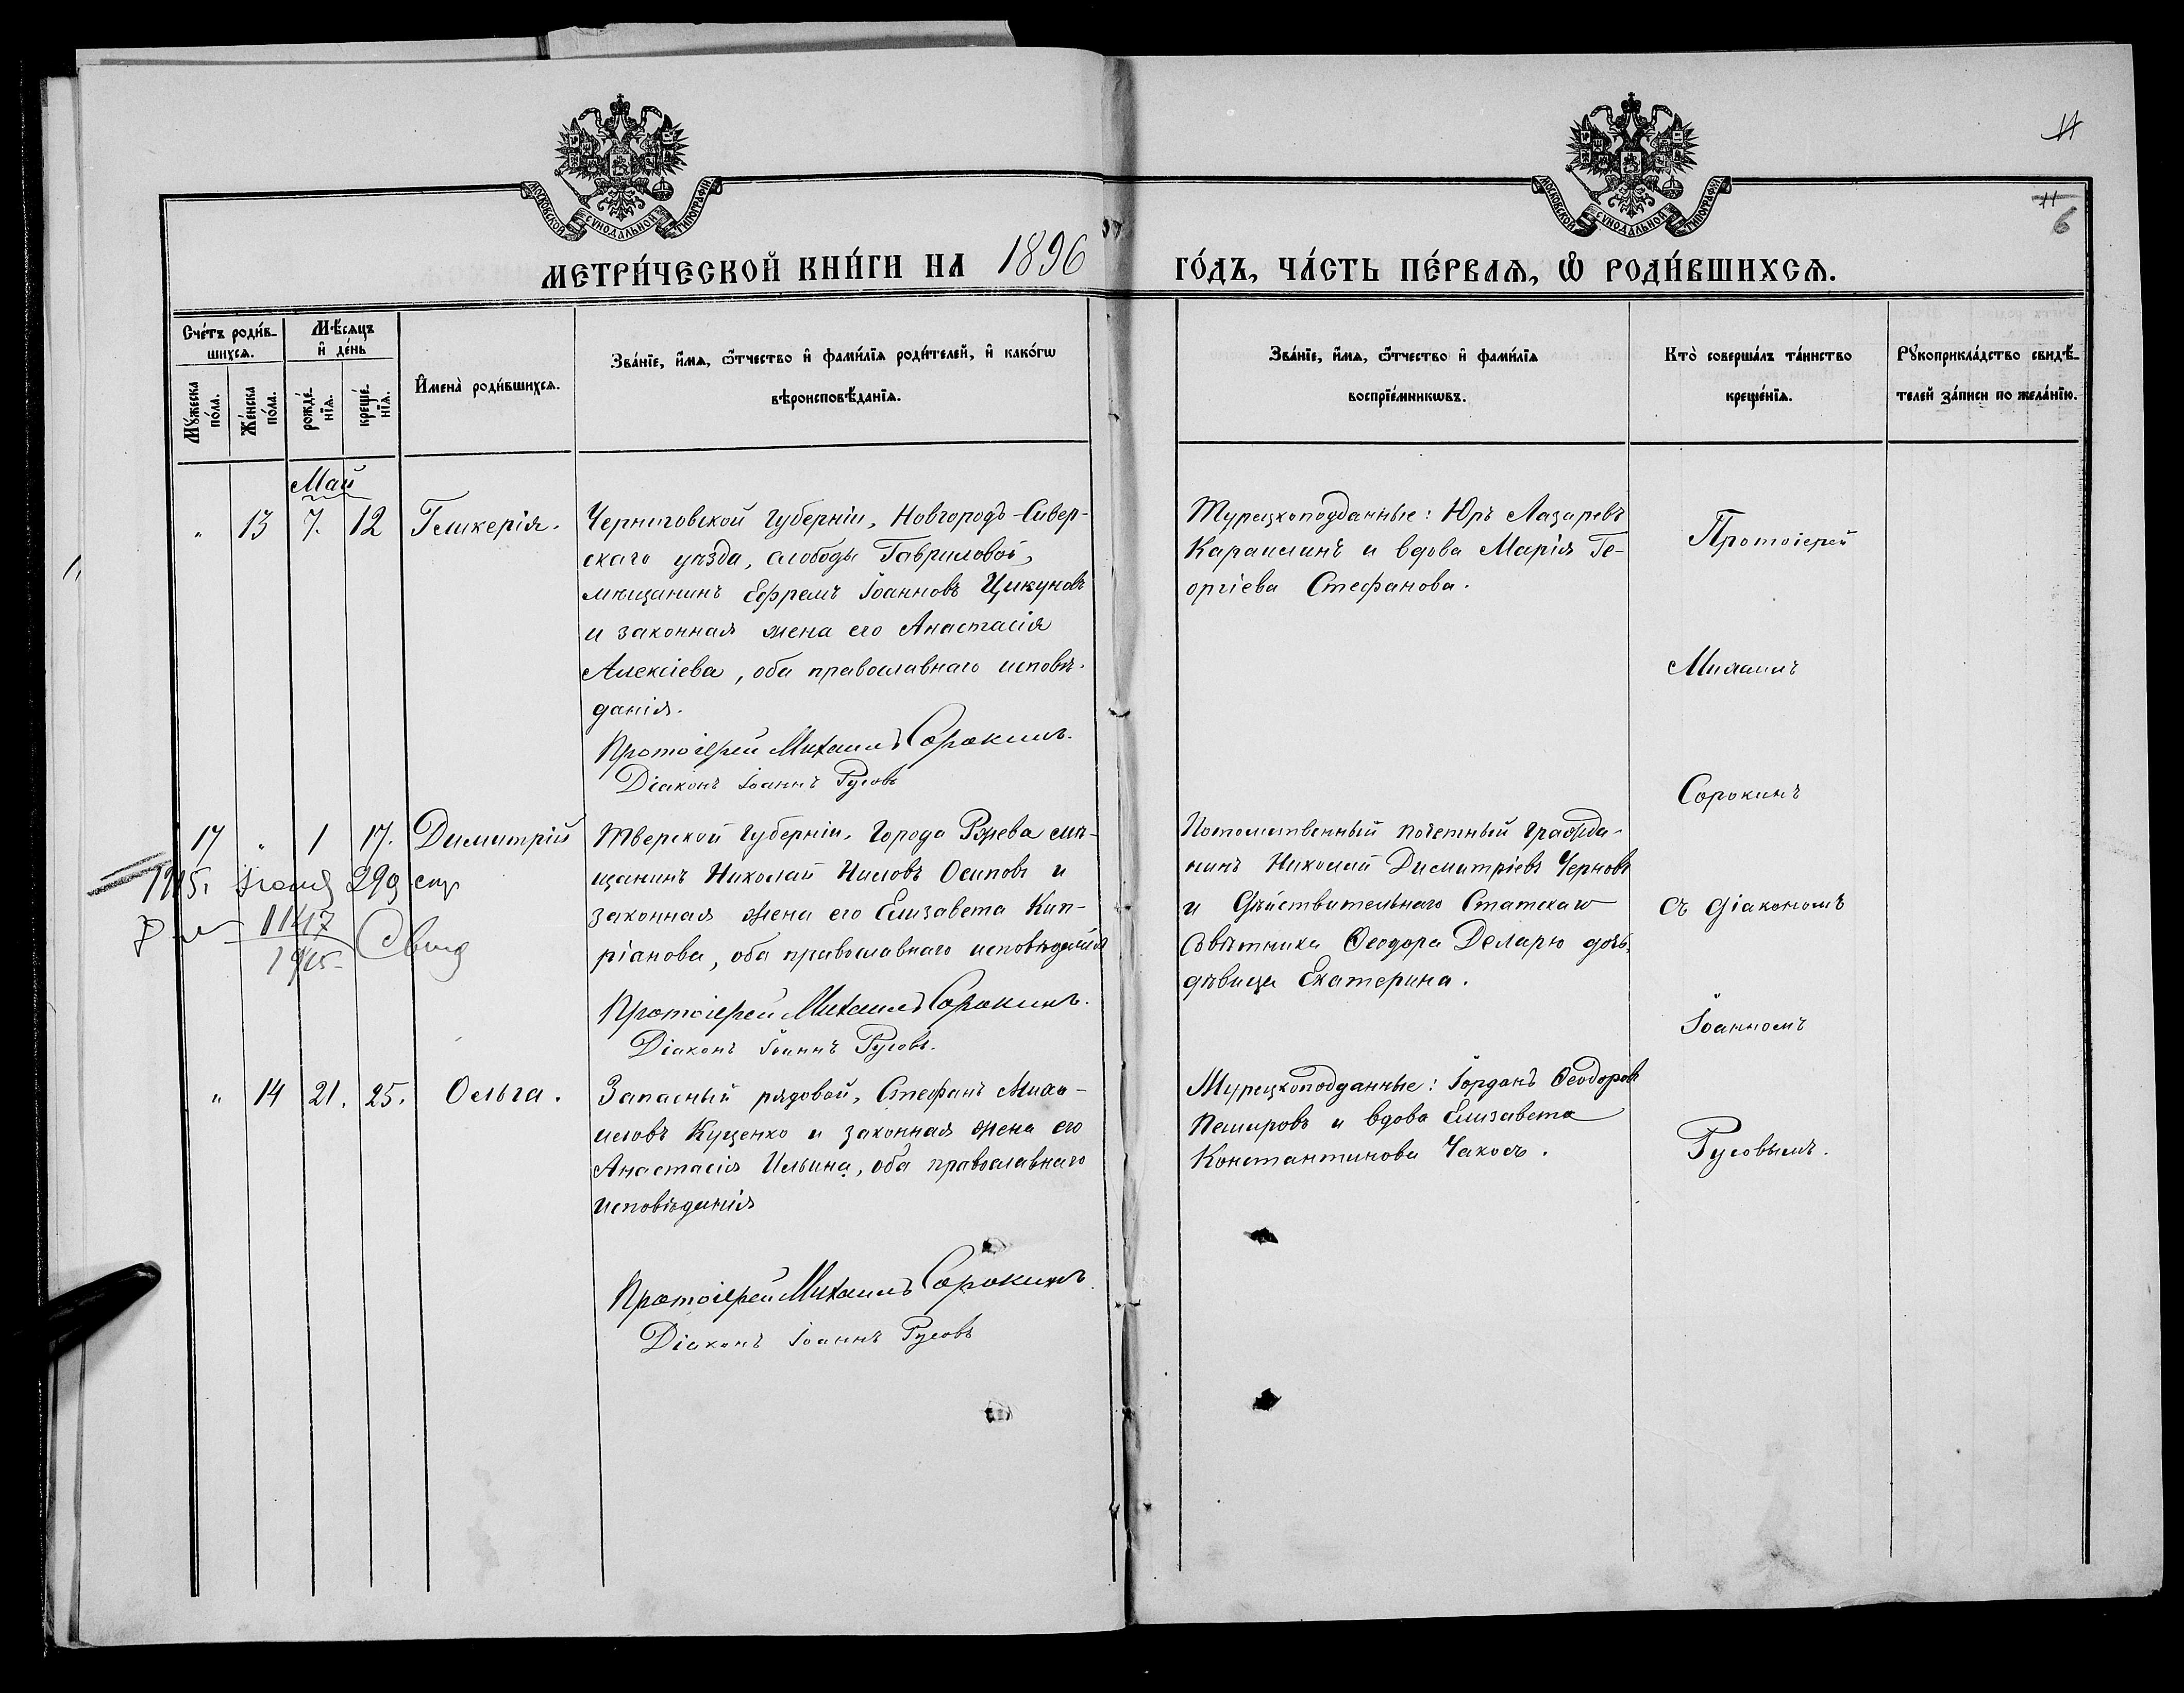 11
11
6
МОСКОВСКОЙ СѴНОДАЛЬНОЙ ТИПОГРАФІИ
МОСКОВСКОЙ СѴНОДАЛЬНОЙ ТИПОГРАФІИ
МЕТРИ́ЧЕСКОЙ КНИ́ГИ НА 1896 ГО́ДЪ, ЧА́СТЬ ПЕ́РВАѦ, Ѡ҆ РОДИ́ВШИХСѦ.
Сче́тъ роди́в-
шихсѧ.
Мꙋ́жеска
по́ла.
Же́нска
по́ла.
Мѣ́сѧцъ
и҆ де́нь
рожде́-
нїѧ.
креще́-
нїѧ.
И҆мена̀ роди́вшихсѧ.
Зва́нїе, и҆́мѧ, ѻ҆́тчество и҆ фами́лїѧ роди́телей, и҆ како́гѡ
вѣроисповѣ́данїѧ.
Зва́нїе, и҆́мѧ, ѻ҆́тчество и҆ фами́лїѧ
воспрїе́мникѡвъ.
Кто̀ соверша́лъ та́инство
креще́нїѧ.
Рꙋкоприкла́дство свидѣ́-
телей за́писи по жела́нїю.
Май
" 13 7. 12 Гликерія.
Черниговской губерніи, Новгородъ-Сивер-
скаго уѣзда, слободы Гавриловой,
мѣщанинъ Ефремъ Іоанновъ Цикуновъ
и законная жена его Анастасія
Алексіева, оба православнаго исповѣ-
данія.
Протоіерей Михаилъ Сорокинъ.
Діаконъ Іоаннъ Русовъ
Турецкоподданные: Юръ Лазаревъ
Караилинъ и вдова Марія Ге-
оргіева Стефанова.
17 " 1 17. Димитрій
1915. 299
11417
1915 Свид
Тверской губерніи, города Ржева мѣ-
щанинъ Николай Ниловъ Осиповъ и
законная жена его Елизавета Кип-
ріанова, оба православнаго исповѣданія
Протоіерей Михаилъ Сорокинъ.
Діаконъ Іоаннъ Русовъ.
Потомственный почетный гражда-
нинъ Николай Димитріевъ Черновъ
и Дѣйствительнаго Статскаго
Совѣтника Ѳеодора Деларю дочь,
дѣвица Екатерина.
" 14 21. 25. Ольга.
Запасный рядовой, Стефанъ Миха-
иловъ Куценко и законная жена его
Анастасія Ильина, оба православнаго
исповѣданія
Протоіерей Михаилъ Сорокинъ.
Діаконъ Іоаннъ Русовъ
Турецкоподданные: Іорданъ Ѳеодоровъ
Пешировъ и вдова Елизавета
Константинова Чакосъ.
Протоіерей
Михаилъ
Сорокинъ
съ діакономъ
Іоанномъ
Русовымъ.